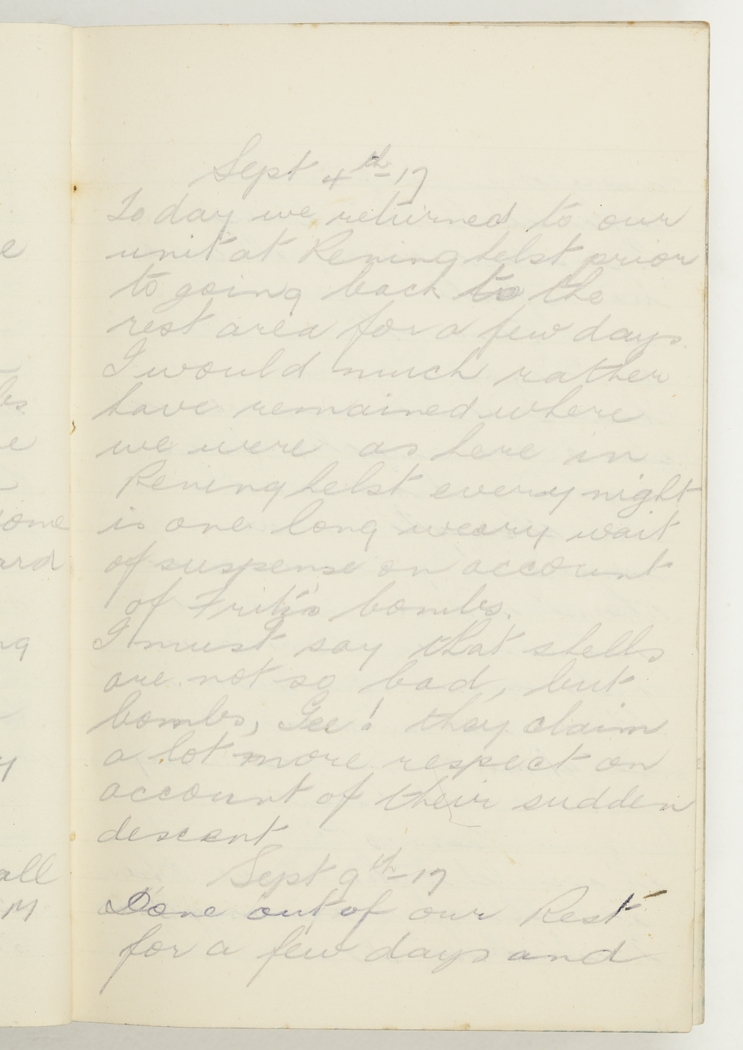 Sept 4th-17
Today we returned to our
unit at Reninghelst prior
to going back to the
rest area for a few days.
I would much rather
have remained where
we were as here in
Reninghelst every night
is one long weary wait
of suspense on account
of Fritz's bombs.
I must say that shells
are not so bad, but
bombs, Gee! they claim
a lot more respect on
account of their sudden
descent
Sept 9th-17
Done out of our Rest
for a few days and
e
bs
e
ome
ard
ng
y
all
M